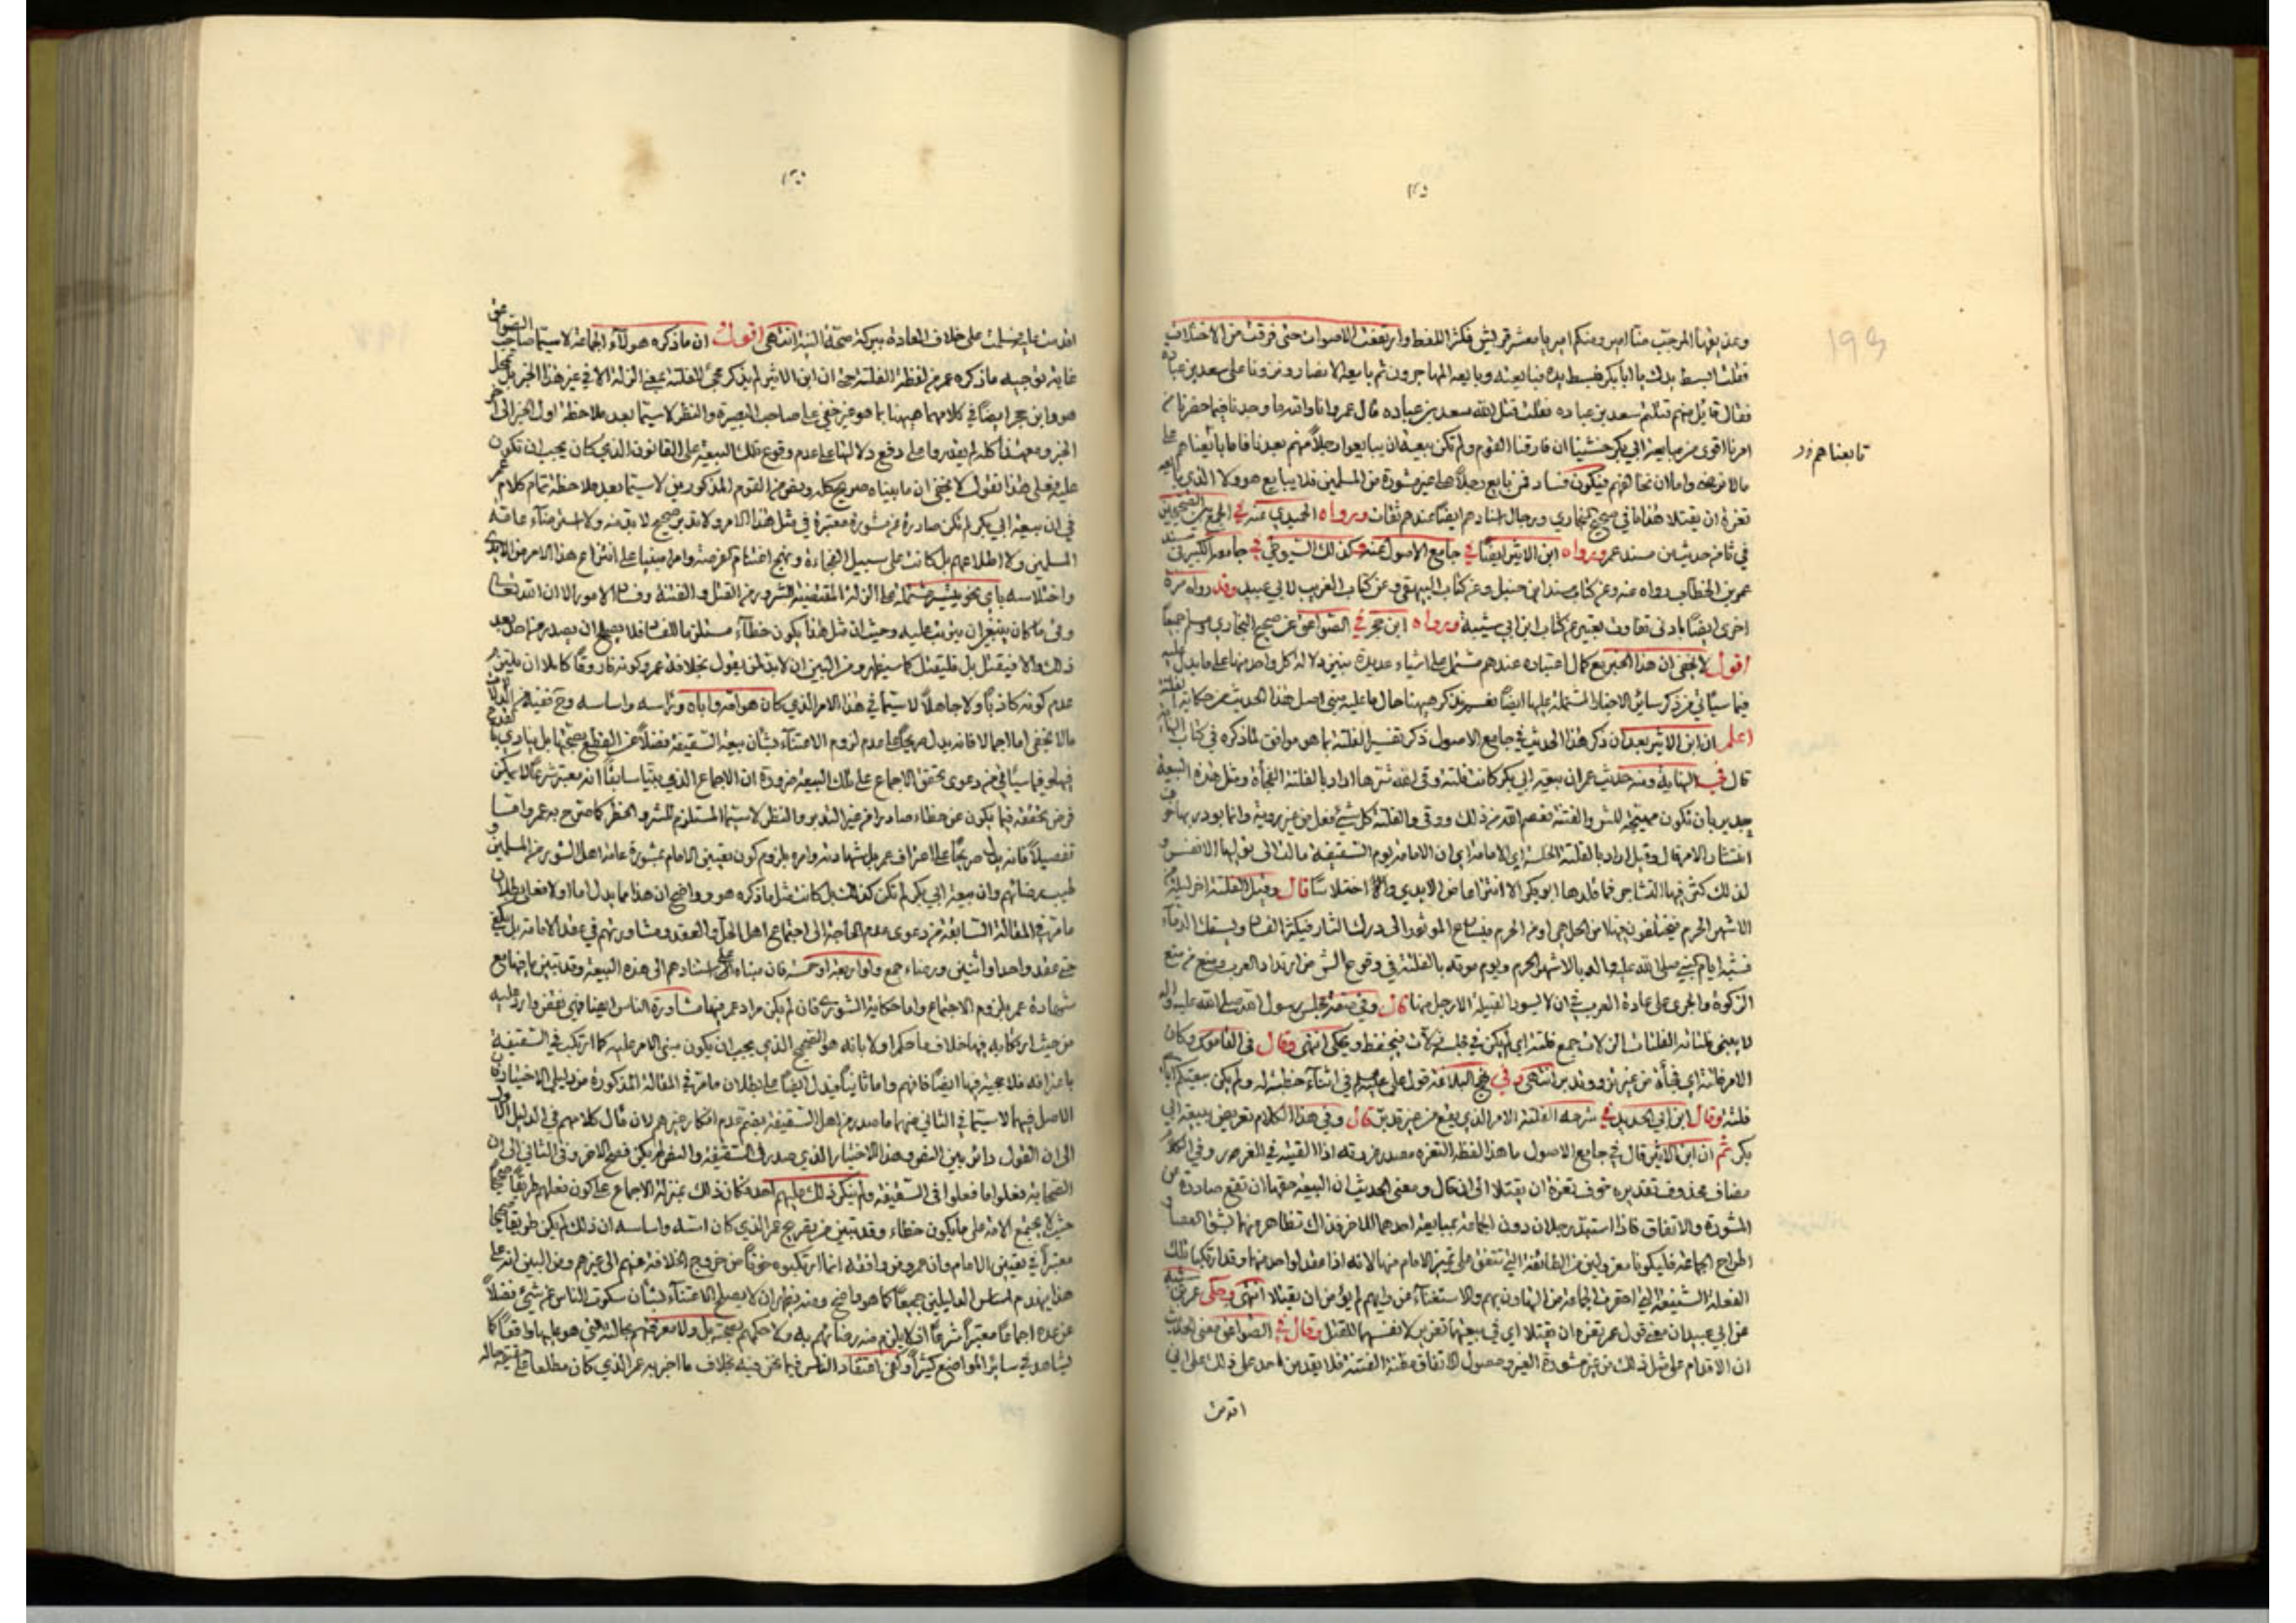 وعذيقها المرجب منا امير ومنكم امير يا معشر قريش فكثر اللغط وارتفعت الاصوات حتى فرقت من الاختلاف
فقلت ابسط يدك يا ابا بكر فبسط يده فبايعته وبايعه المهاجرون ثم بايعه الانصار ونزونا على سعد بن عباده
فقال قائل منهم قتلتم سعد بن عباده فقلت قتل الله سعد بن عباده قال عمر وانا والله ما وجدنا فيما حضرنا من
امرنا اقوى من مبايعة ابي بكر خشينا ان فارقنا القوم ولم تكن بيعة ان يبايعوا رجلاً منهم بعدنا فاما بايعناهم على
تابعناهم
مالا نرضى واما ان نخالفهم فيكون فساد فمن بايع رجلاً على غير مشورة من المسلمين فلا يبايع هو ولا الذي بايعه
تغرة ان يقتلا هذا ما في صحيح البخاري ورجال اسناده ايضاً عندهم ثقات ورواه الحميدي عنه في الجمع بين الصحيحين
في ثامن حديث من مسند عمر ورواه ابن الاثير ايضاً في جامع الاصول عنه وكذلك السيوطي في جامعه الكبير في مسند
عمر بن الخطاب رواه عنه وعن كتاب مسند ابن حنبل وعن كتاب البيهقي وعن كتاب الغريب لابي عبيد وقد رواه مرة
اخرى ايضاً بادنى تفاوت بتغيير عن كتاب ابن ابي شيبة ورواه ابن حجر في الصواعق عن صحيح البخاري ومسلم جميعاً
اقول لا يخفى ان هذا الخبر مع كمال اعتباره عندهم مشتمل على اشياء عديدة يتبين دلالة كل واحد منها على ما يدل عليه
فيما سيأتي من ذكر سائر الاخبار المشتملة عليها ايضاً نذكر هيهنا حال ما عليه مبنى اصل هذا الحديث من حكاية الفلتة
اعلم ان ابن الاثير بعد ان ذكر هذا الحديث في جامع الاصول ذكر تفسير الفلتة بما هو موافق لما ذكره في كتاب النهاية
قال في النهاية ومنه حديث عمر ان بيعة ابي بكر كانت فلتة وقى الله شرها اراد بالفلتة الفجأة ومثل هذه البيعة
جديرة بان تكون مهيجة للشر والفتنة فعصم الله من ذلك ووقى والفلتة كل شئ فعل من غير روية وانما بودر بها خوف
انتشار الامر قال وقيل اراد بالفلتة الخلسة اي ان الامامة يوم السقيفة مالت الى توليها الانفس و
لذلك كثر فيها التشاجر فما قلدها ابو بكر الا انتزاعاً من الايدي واختلاساً قال وقيل الفلتة اخر ليلة من
الاشهر الحرم فيختلفون فيها امن الحل هي او من الحرم فيسارع الموتور الى درك الثار فيكثر الفساد ويسفك الدماء
فشبه ايام النبي صلى الله عليه واله بالاشهر الحرم ويوم موته بالفلتة في وقوع الشر من ارتداد العرب ومنع من منع
الزكوة والجري على عادة العرب في ان لا يسود القبيلة الا رجل منها قال وفي صفة مجلس رسول الله صلى الله عليه واله
لا ينثى فلتاته الفلتات الزلات جمع فلتة اي لم يكن في مجلسه زلات فتحفظ وتحكى انتهى وقال في القاموس وكان
الامر فلتة اي فجأة من غير تردد وتدبر انتهى وفي نهج البلاغة قول علي عليه السلم في اثناء خطبة له ولم يكن بيعتكم اياي
فلتة وقال ابن ابي الحديد في شرحه الفلتة الامر الذي يقع من غير تدبر قال وفي هذا الكلام تعريض ببيعة ابي
بكر ثم ان ابن الاثير قال في جامع الاصول ما هذا لفظه التغرة مصدر غررته اذا القيته في الغرر وفي الكلام
مضاف محذوف تقديره خوف تغرة ان يقتلا الى ان قال ومعنى الحديث ان البيعة حقها ان تقع صادرة عن
المشورة والاتفاق فاذا استبد رجلان دون الجماعة بمبايعة احدهما للاخر فذاك تظاهر منهما بشق العصا و
اطراح الجماعة فليكونا معزولين من الطائفة التي تتفق على تمييز الامام منها لانه اذا عقد لواحد منهما وقد ارتكبا تلك
الفعلة الشنيعة التي احفزت الجماعة من التهاون بهم والاستغناء عن رأيهم لم يؤمن ان يقتلا انتهى وحكى عن
عن ابي عبيد ان معنى قول عمر تغرة ان يقتلا اي في بيعتهما تغرير لانفسهما للقتل وقال في الصواعق معنى الحديث
ان الاقدام على مثل ذلك من غير مشورة الغير وحصول الاتفاق مظنة الفتنة فلا يقدمن احد على ذلك على اني
اقدمت
اقدمت عليه فسلمت على خلاف العادة ببركة صحة النية انتهى اقول ان ما ذكره هولاء الجماعة لا سيما صاحب الصواعق
غاية توجيه ما ذكره عمر من لفظة الفلتة حتى ان ابن الاثير لم يذكر مجئ الفلتة بمعنى الزلة الا في غير هذا الخبر بل
هو وابن حجر ايضاً في كلامهما هيهنا بما هو غير خفي على صاحب البصيرة والنظر لا سيما بعد ملاحظة اول الخبر الى اخر
الخبر ومع هذا كله لم يقدروا على دفع دلالتها على عدم وقوع تلك البيعة على القانون الذي كان يجب ان تكون
عليه فعلى هذا نقول لا يخفى ان ما بيناه صريح كلام بعض من القوم المذكورين لا سيما بعد ملاحظة تمام كلام عمر
في ان بيعة ابي بكر لم تكن صادرة عن مشورة معتبرة في مثل هذا الامر ولا تدبر صحيح لا بد منه ولا استرضاء عامة
المسلمين ولا اطلاعهم بل كانت على سبيل الفجاءة ونهج اغتنام الفرصة وامراً مبنياً على انتزاع هذا الامر من الايدي
واختلاسه باي نحو تيسر مشتملة على الزلة المقتضية للشرور من القتل والفتنة وفساد الامور الا ان الله تعالى
وقى ما كان ينبغي ان يترتب عليه وحيث ان مثل هذا يكون خطاء مستلزماً للفساد فلا يصلح ان يصدر عن احد بعد
ذلك والا فيقتل بل فليقتل كما سيظهر ومن البين ان لا بد لمن يقول بخلافة عمر وكونه فاروقاً كاملا ان يلتزم
عدم كونه كاذباً ولا جاهلاً لا سيما في هذا الامر الذي كان هو امه واباه وراسه واساسه وح ففيه من الدلالات
مالا يخفى اما اجمالا فانه يدل صريحاً على عدم لزوم الاعتناء بشأن بيعة السقيفة فضلاً عن القطع بصحتها بل ينادي بالقدح
فيها وفيما سيأتي من دعوى تحقق الاجماع على تلك البيعة ضرورة ان الاجماع الذي بينا سابقاً انه معتبر شرعاً لا يمكن
فرض تحققه فيما يكون عن خطاء صادر عن غير التدبر والنظر لا سيما المستلزم للشر والخطر كما صرح به عمر واما
تفصيلاً فانه يدل صريحاً على اعتراف عمر بل شهادته وامره بلزوم كون تعيين الامام بمشورة عامة اهل الشور من المسلمين و
طيب رضائهم وان بيعة ابي بكر لم تكن كذلك بل كانت مثل ما ذكره هو وواضح ان هذا مما يدل اما اولا فعلى بطلان
ما مر في المقالة السابقة من دعوى عدم الحاجة الى اجتماع اهل الحل والعقد ومشاورتهم في عقد الامامة بل يكفي
حتى عقد واحد او اثنين ورضاء جمع ولو اربعة او خمسة فان مبناه على استنادهم الى هذه البيعة وقد تبين ما فيها مع
شهادة عمر بلزوم الاجتماع واما حكاية الشورى فان لم يكن مراد عمر فيها مشاورة الناس ايضاً فهي نقض وارد عليه
من حيث ارتكابه فيها خلاف ما حكم اولا بانه هو الصحيح الذي يجب ان يكون مبنى الامر عليه كما ارتكب في السقيفة
باعترافه فلا حجية فيها ايضاً فافهم واما ثانياً فيدل ايضاً على بطلان ما مر في المقالة المذكورة من دليلي الاختيار لان
الاصل فيهما لا سيما في الثاني منهما ما صدر من اهل السقيفة بضم عدم انكار غيرهم لان مال كلامهم في الدليل الاول
الى ان القول دائر بين النص وهذا الاختيار الذي صدر في السقيفة والنص لم يكن فصح الاخر وفي الثاني الى ان
الصحابة فعلوا ما فعلوا في السقيفة ولم ينكر ذلك عليهم احد وكان ذلك بمنزلة الاجماع على كون فعلهم طريقاً صحيحاً
حيث لا يجتمع الامة على ما يكون خطاء وقد تبين من تصريح عمر الذي كان اسه واساسه ان ذلك لم يكن طريقاً صحيحا
معتبراً في تعيين الامام وان عمر ومن وافقه انما ارتكبوه خوفاً من خروج الخلافة عنهم الى غيرهم ومن البين انه على
هذا ينهدم اساس الدليلين جميعاً كما هو واضح ومنه يظهر ان لا يصلح الاعتناء بشأن سكوت الناس عن شئ فضلاً
عن عده اجماعاً معتبراً شرعاً اذ لا يلزم منه رضائهم به ولا حكمهم بصحته بل ولا معرفتهم بحالته التي هو عليها واقعاً كما
يشاهد في سائر المواضع كثيراً وكفى اعتقاد الناس فيما نحن فيه بخلاف ما اخبر به عمر الذي كان مطلعا على حقيقة حاله